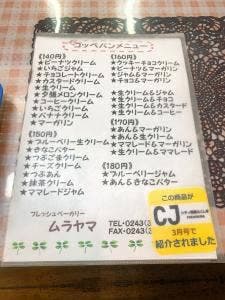 コッペパンメニュー
《140円》
★ピーナツクリーム
★いちごジャム
★チョコレートクリーム
★カスタードクリーム
★生クリーム
★夕張メロンクリーム
★コーヒークリーム
★いちごクリーム
★バナナクリーム
★マーガリン
《150円》
★ブルーベリー生クリーム
★きなこバター
★つぶごまクリーム
★チーズクリーム
★つぶあん
★抹茶クリーム
★ママレードジャム
《160円》
★クッキーチョコクリーム
★ピーナツ&マーガリン
★ジャム&マーガリン
★チョコ&マーガリン
★生クリーム&ジャム
★生クリーム&チョコ
★生クリーム&カスタード
★生クリーム&
《170円》
★あん&マーガリン
★あん&生クリーム
★ママレード&マーガリン
★生クリーム&ママレード
《180円》
★ブルーベリージャム
★あん&きなこバター
フレッシュベーカリー
ムラヤマ
TEL・0243(
FAX・0243(
この商品が
CJ
3月号で
紹介されました